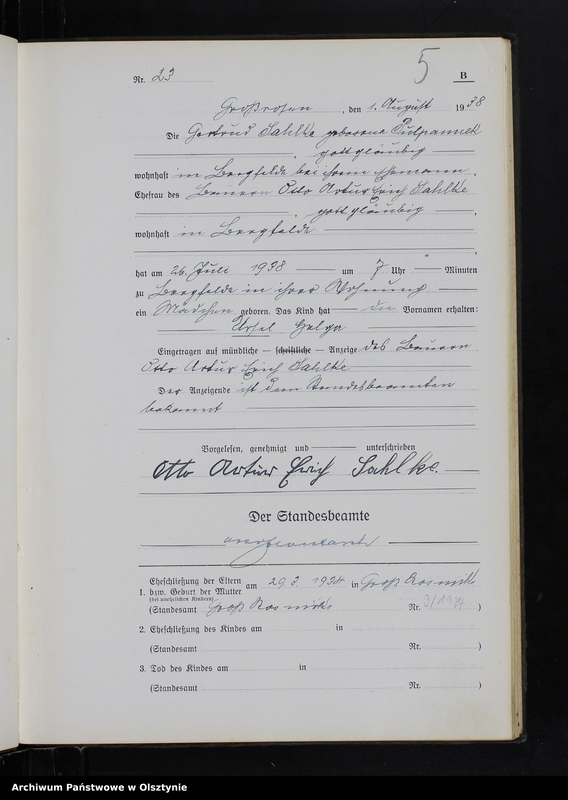 5
Nr. 23 B
Großrosen, den 1. August 1938
Die Gertrud Sahlke geborene
, gottgläubig
wohnhaft in Bergfelde bei ihrem Ehemann,
Ehefrau des Bauern Otto Artur Erich Sahlke
, gottgläubig,
wohnhaft in Bergfelde
,
hat am 26. Juli 1938 um 7 Uhr Minuten
zu Bergfelde in ihrer Wohnung
ein Mädchen geboren. Das Kind hat die Vornamen erhalten:
Ursel Helga
Eingetragen auf mündliche — schriftliche — Anzeige des Bauern
Otto Artur Erich Sahlke
Der Anzeigende ist dem Standesbeamten
bekannt
Vorgelesen, genehmigt und unterschrieben
Otto Artur Erich Sahlke.
Der Standesbeamte
1. Eheschließung der Eltern bzw. Geburt der Mutter (bei unehelichen Kindern) am 29.3.1934 in Groß
(Standesamt Groß Nr. 3/1934)
2. Eheschließung des Kindes am in
(Standesamt Nr. )
3. Tod des Kindes am in
(Standesamt Nr. )
Archiwum Państwowe w Olsztynie